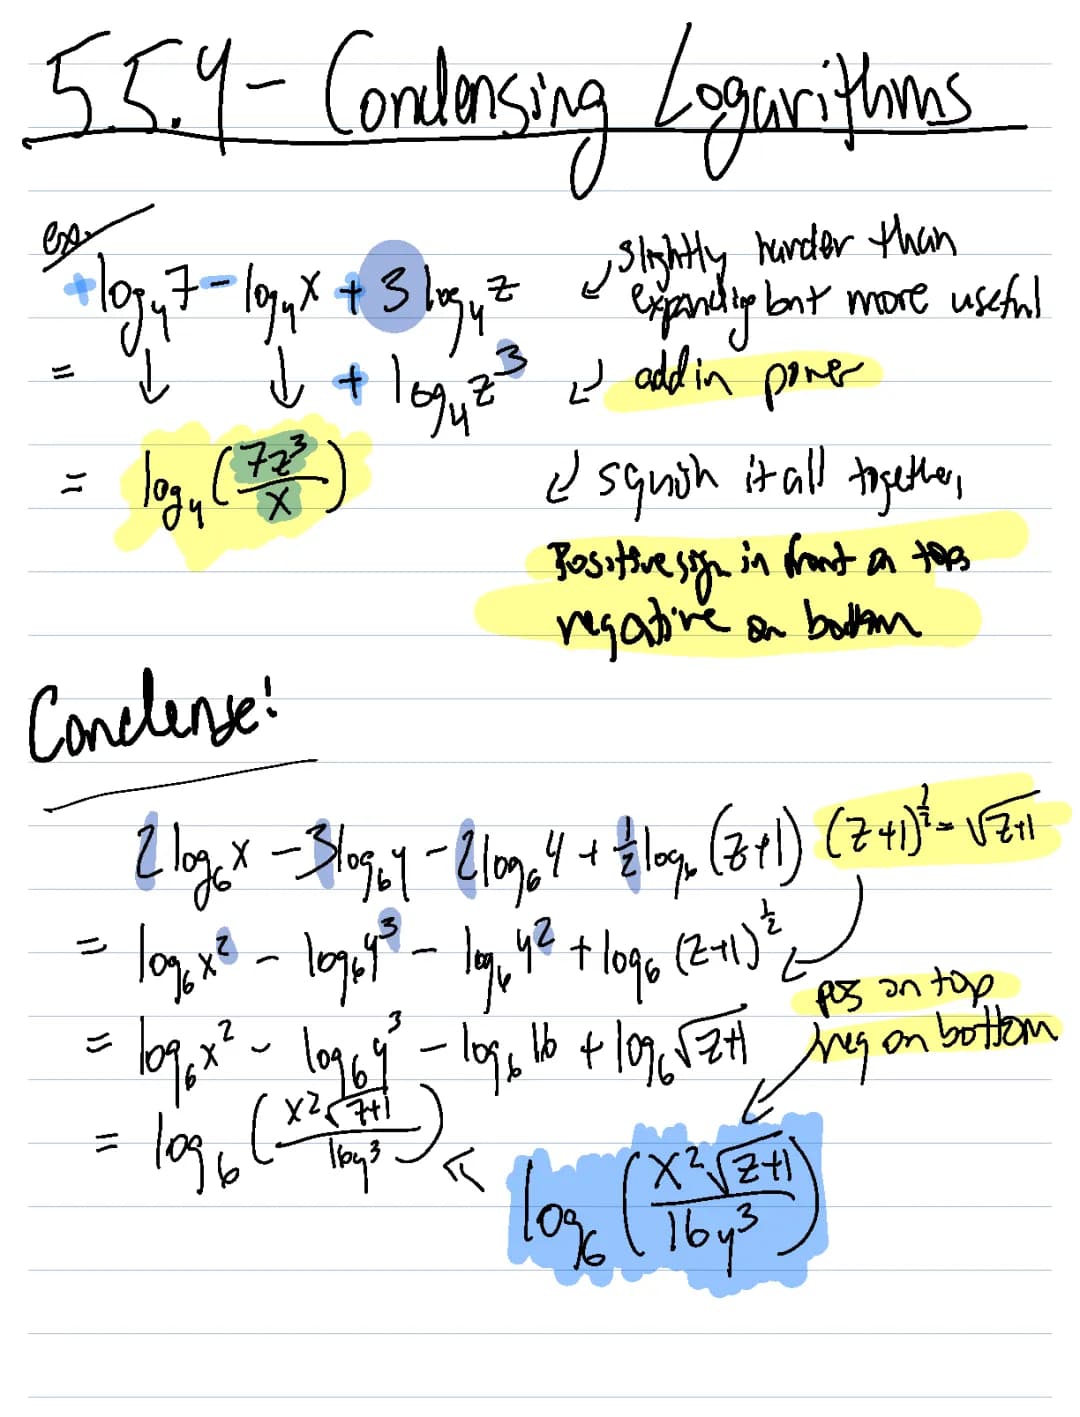 5.5.4 - Condensing Logarithms
ex.
+log₄7 - log₄x + 3log₄z
slightly harder than
expanding but more useful
= ↓ ↓ + log₄z³
add in power
= log₄(7z³/x)
squish it all together,
Positive sign in front on top
negative on bottom
Condense!
2log₆x - 3log₆y - 2log₆4 + ½log₆(z+1)
(z+1)^½ = √z+1
= log₆x² - log₆y³ - log₆4² + log₆(z+1)^½
pos on top
neg on bottom
= log₆x² - log₆y³ - log₆16 + log₆√z+1
= log₆(x²√z+1/16y³)
log₆(x²√z+1/16y³)